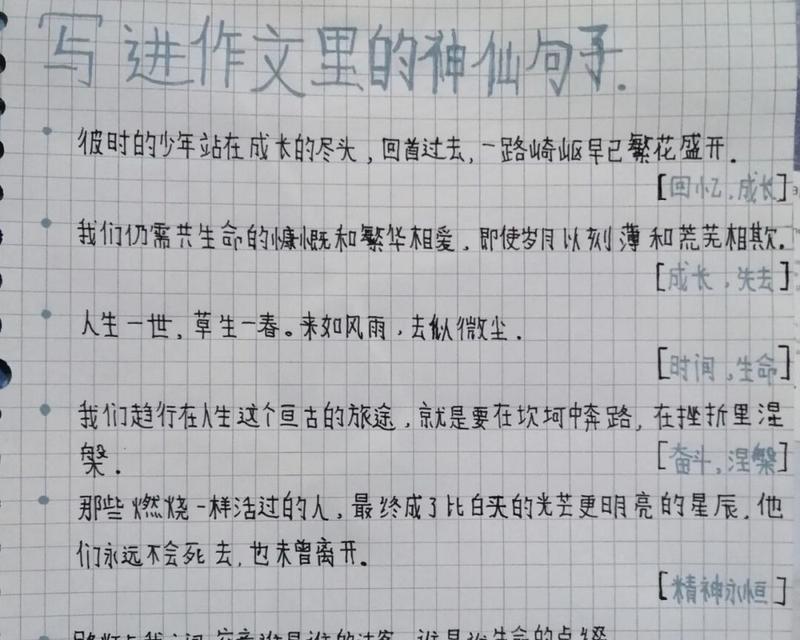 写进作文里的神仙句子.
彼时的少年站在成长的尽头,回首过去,一路崎岖早已繁花盛开.
[回忆.成长]
我们仍需共生命的慷慨和繁华相爱,即使岁月以刻薄和荒芜相欺.
[成长,失去]
人生一世,草生一春。来如风雨,去似微尘.
[时间,生命]
我们趋行在人生这个亘古的旅途,就是要在坎坷中奔路,在挫折里涅
槃.
[奋斗,涅槃]
那些燃烧一样活过的人,最终成了比白天的光芒更明亮的星辰.他
们永远不会死去,也未曾离开。
[精神永恒]